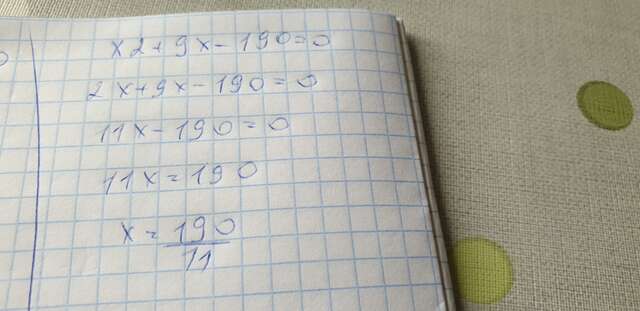 x2+9x-190=0
2x+9x-190=0
11x-190=0
11x=190
x=190/11